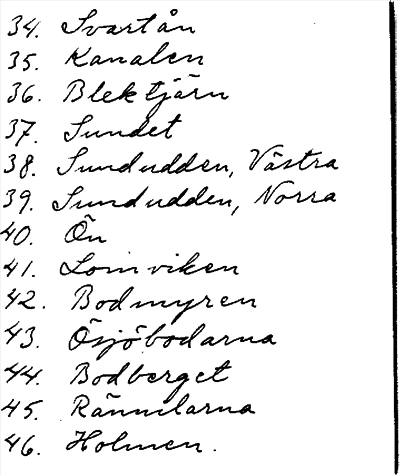 34. Svartån
35. Kanalen
36. Blektjärn
37. Sundet
38. Sundudden, Västra
39. Sundudden, Norra
40. Ön
41. Lomviken
42. Bodmyren
43. Ösjöbodarna
44. Bodberget
45. Rännilarna
46. Holmen.